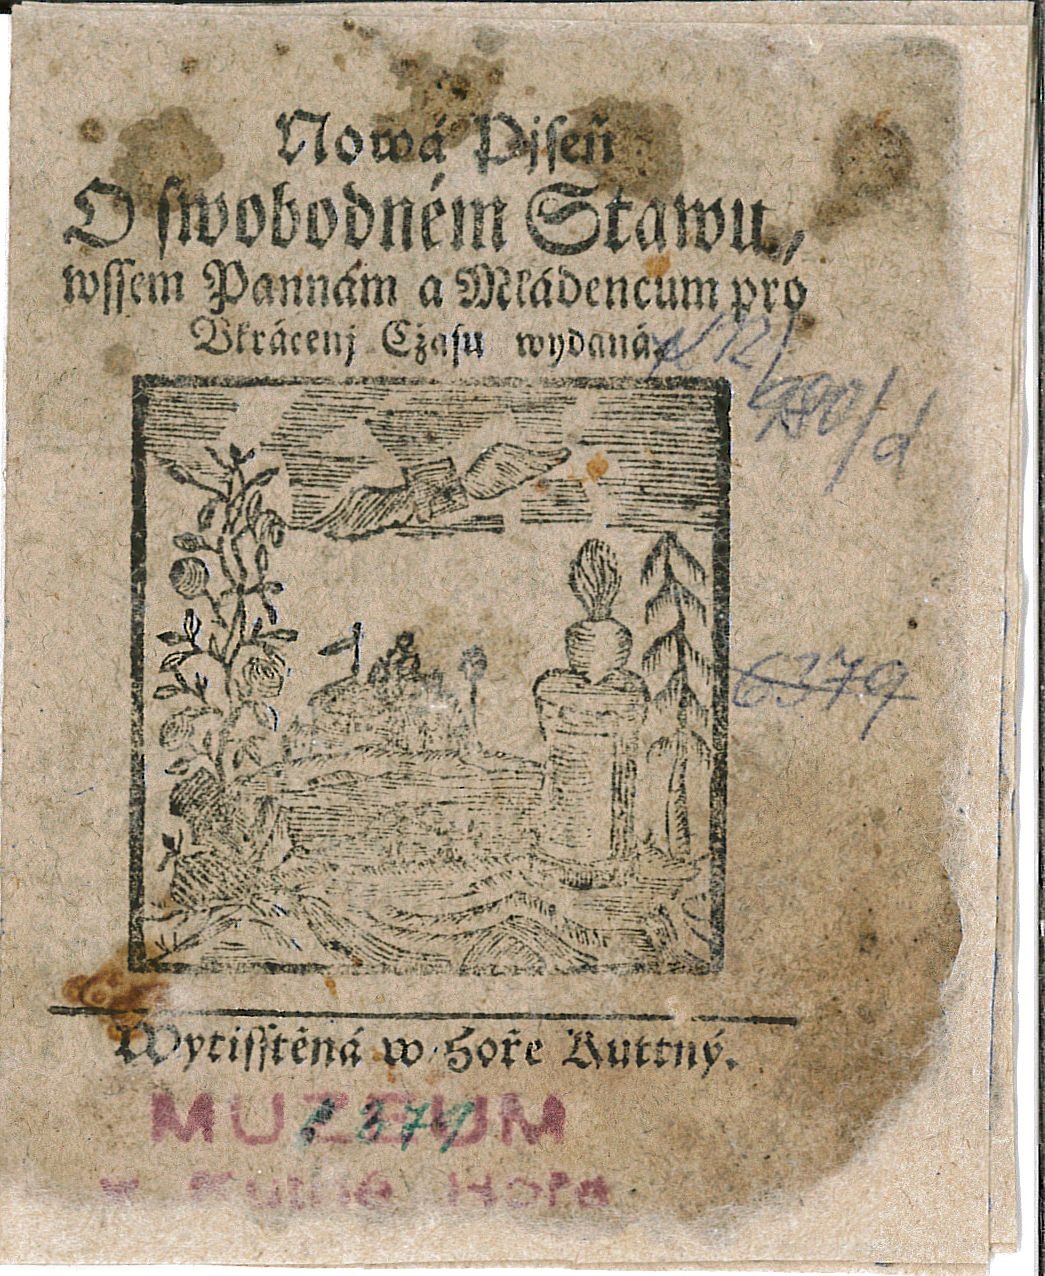 Nowá Pjseň
O swobodném Stawu,
wssem Pannám a Mládencum pro
Vkrácenj Cżasu wydaná.
6379
Wytisstěná w Hoře Kuttný.
MUZEUM
v Kutné Hoře